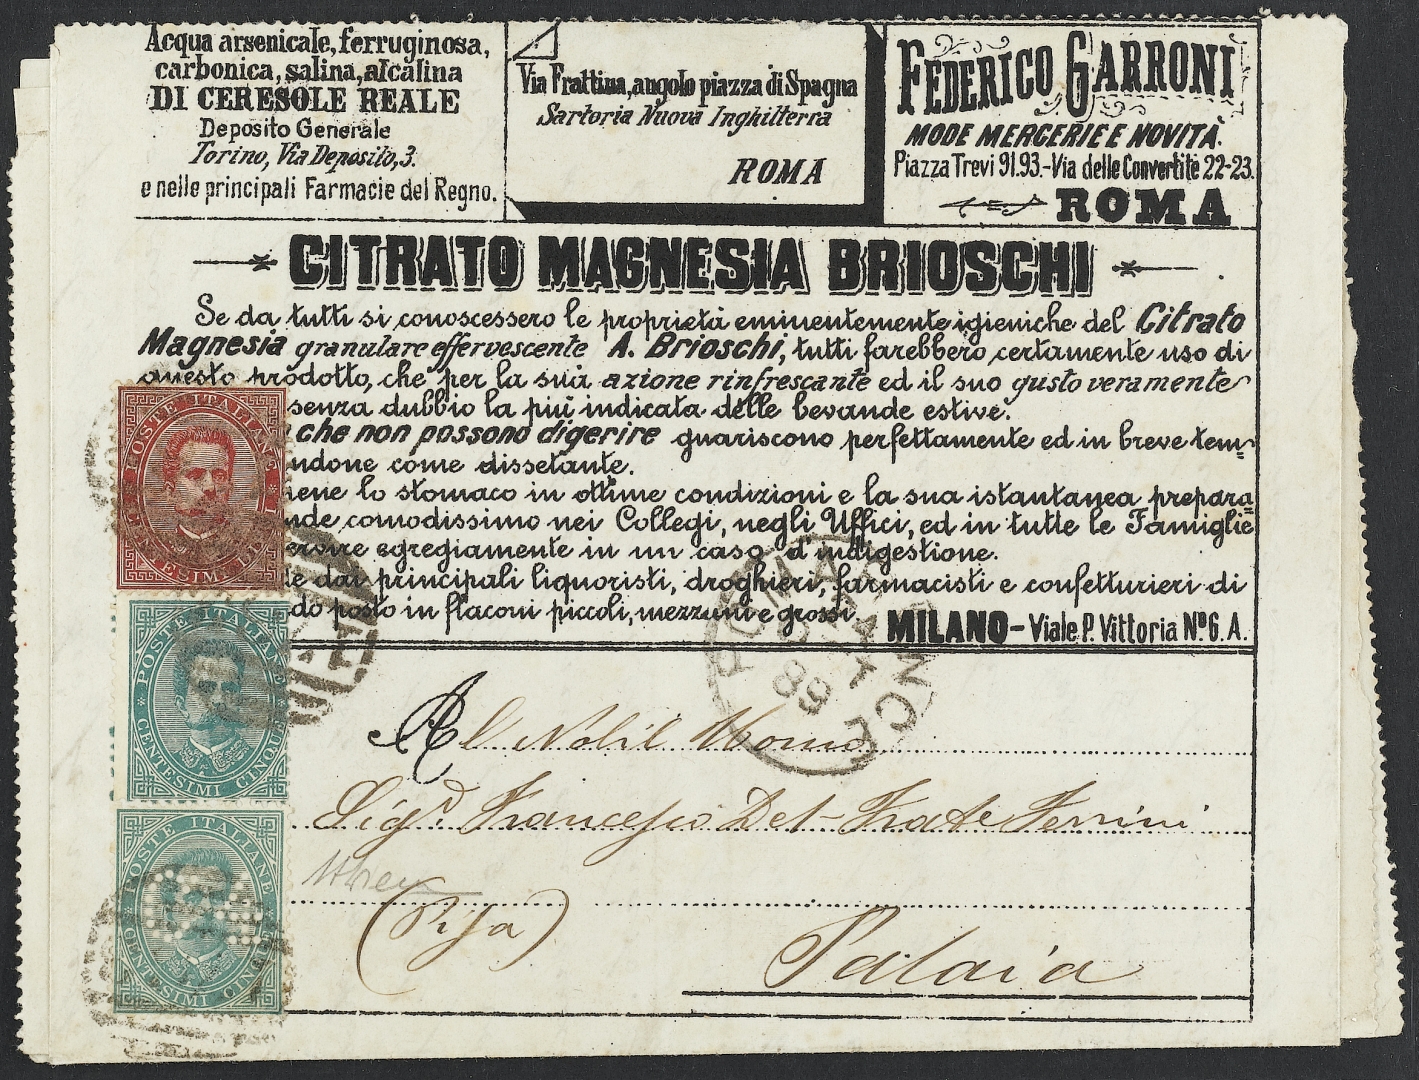 Acqua arsenicale, ferruginosa,
carbonica, salina, alcalina
DI CERESOLE REALE
Deposito Generale
Torino, Via Deposito, 3.
e nelle principali Farmacie del Regno.
Via Frattina, angolo piazza di Spagna
Sartoria Nuova Inghilterra
ROMA
FEDERICO GARRONI
MODE MERCERIE E NOVITÀ.
Piazza Trevi 91.93.-Via delle Convertite 22-23.
ROMA
CITRATO MAGNESIA BRIOSCHI
Se da tutti si conoscessero le proprietà eminentemente igieniche del Citrato
Magnesia granulare effervescente A. Brioschi, tutti farebbero certamente uso di
questo prodotto, che per la sua azione rinfrescante ed il suo gusto veramente
senza dubbio la più indicata delle bevande estive.
che non possono digerire guariscono perfettamente ed in breve tem-
ndone come dissetante.
iene lo stomaco in ottime condizioni e la sua istantanea prepara=
nde comodissimo nei Collegi, negli Uffici, ed in tutte le Famiglie
ervire egregiamente in un caso d'indigestione.
e dai principali liquoristi, droghieri, farmacisti e confetturieri di
do posto in flaconi piccoli, mezzani e grossi.
MILANO - Viale P. Vittoria Nº 6. A.
POSTE ITALIANE
CENTESIMI DIECI
POSTE ITALIANE
CENTESIMI CINQUE
POSTE ITALIANE
CENTESIMI CINQUE
ROMA
89
Al Nobil Uomo
Sigr. Francesco Del-Frate Ferrini
(Pisa)
Palaia